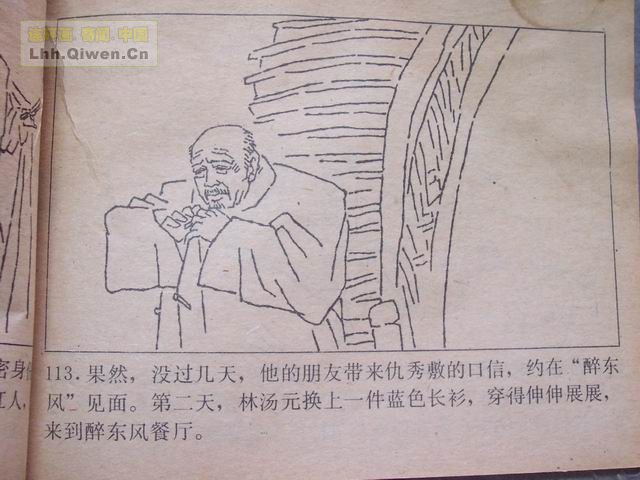 连环画.春阁.中国
Lhh.Qiwen.Cn
密身
江人,
113.果然，没过几天，他的朋友带来仇秀敷的口信，约在“醉东
风”见面。第二天，林汤元换上一件蓝色长衫，穿得伸伸展展，
来到醉东风餐厅。